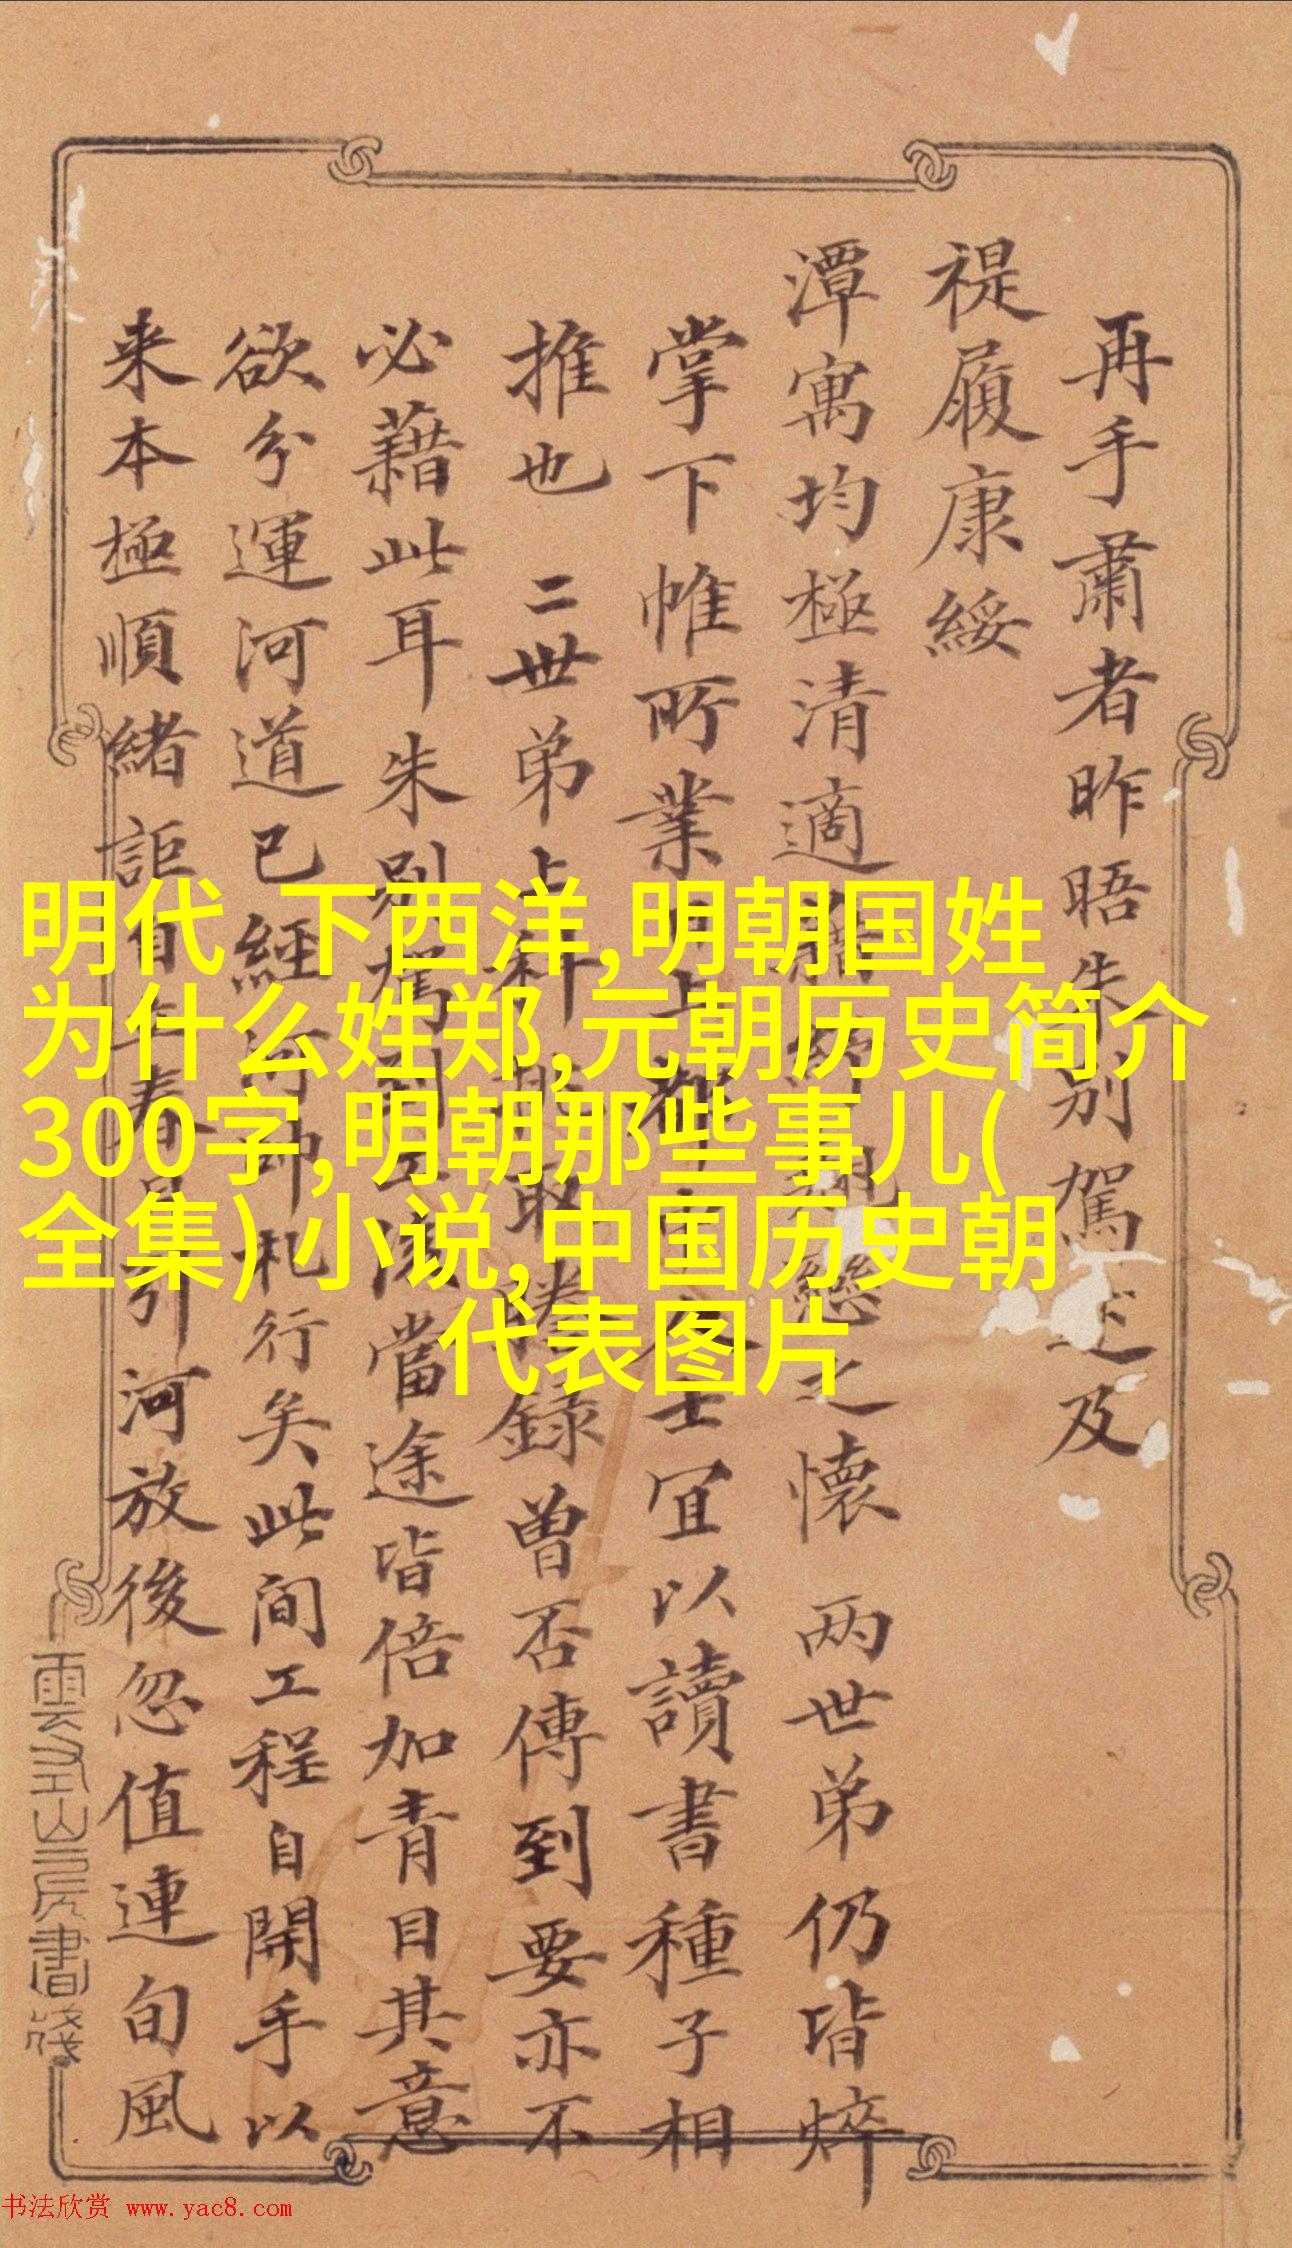 再手肅者昨晤朱別駕述及
禔履康綏
潭寓均極清適
之懷 两世弟仍皆焠
掌下帷所業
士宜以讀書種子相
推也 二世弟上科
錄曾否傳到要亦不
必藉此耳朱別駕到
當途皆倍加青目其意
欲分運河道已經
札行矣此间工程自開手以
来本極順緒詎自
引河放後忽值連旬風
書箋
明代 下西洋,明朝国姓
为什么姓郑,元朝历史简介
300字,明朝那些事儿(
全集)小说,中国历史朝
代表图片
书法欣赏 www.yac8.com